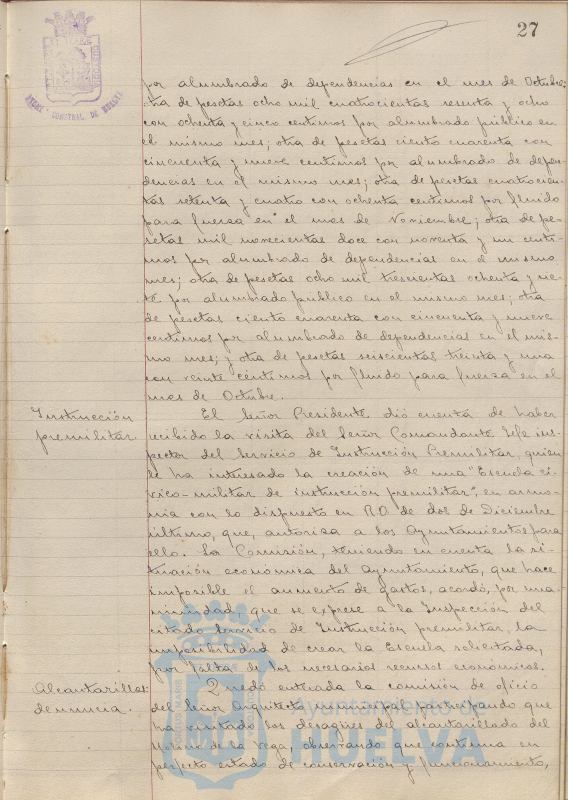 27
por alumbrado de dependencias en el mes de Octubre;
tra de pesetas ocho mil cuatrocientas sesenta y ocho
con ochenta y cinco centimos por alumbrado público en
el mismo mes; otra de pesetas ciento cuarenta con
cincuenta y nueve centimos por alumbrado de depen-
dencias en el mismo mes; otra de pesetas cuatrocien-
tas setenta y cuatro con ochenta centimos por fluido
para fuerza en el mes de Noviembre; otra de pe-
setas mil novecientas doce con noventa y un centi-
mos por alumbrado de dependencias en el mismo
mes; otra de pesetas ocho mil trescientas ochenta y sie-
te por alumbrado público en el mismo mes; otra
de pesetas ciento cuarenta con cincuenta y nueve
centimos por alumbrado de dependencias en el mis-
mo mes; y otra de pesetas seiscientas treinta y una
con veinte centimos por fluido para fuerza en el
mes de Octubre.
Instrucción
premilitar.
El Señor Presidente dió cuenta de haber
recibido la visita del Señor Comandante Jefe ins-
pector del Servicio de Instrucción Premilitar, quien
le ha interesado la creación de una "Escuela ci-
vico-militar de instrucción premilitar", en armo-
nia con lo dispuesto en R.D. de dos de Diciembre
último, que, autoriza a los Ayuntamientos para
ello. La Comisión, teniendo en cuenta la si-
tuación economica del Ayuntamiento, que hace
imposible el aumento de gastos, acordó, por una-
nimidad, que se exprese a la Inspección del
citado Servicio de Instrucción premilitar, la
imposibilidad de crear la Escuela solicitada,
por falta de los necesarios recursos económicos.
Alcantarillas
denuncia.
Quedó enterada la comisión de oficio
del Señor Arquitecto municipal participando que
ha visitado los desagües del alcantarillado del
Molino de la Vega, observando que continua en
perfecto estado de conservación y funcionamiento,
Ayuntamiento de
HUELVA